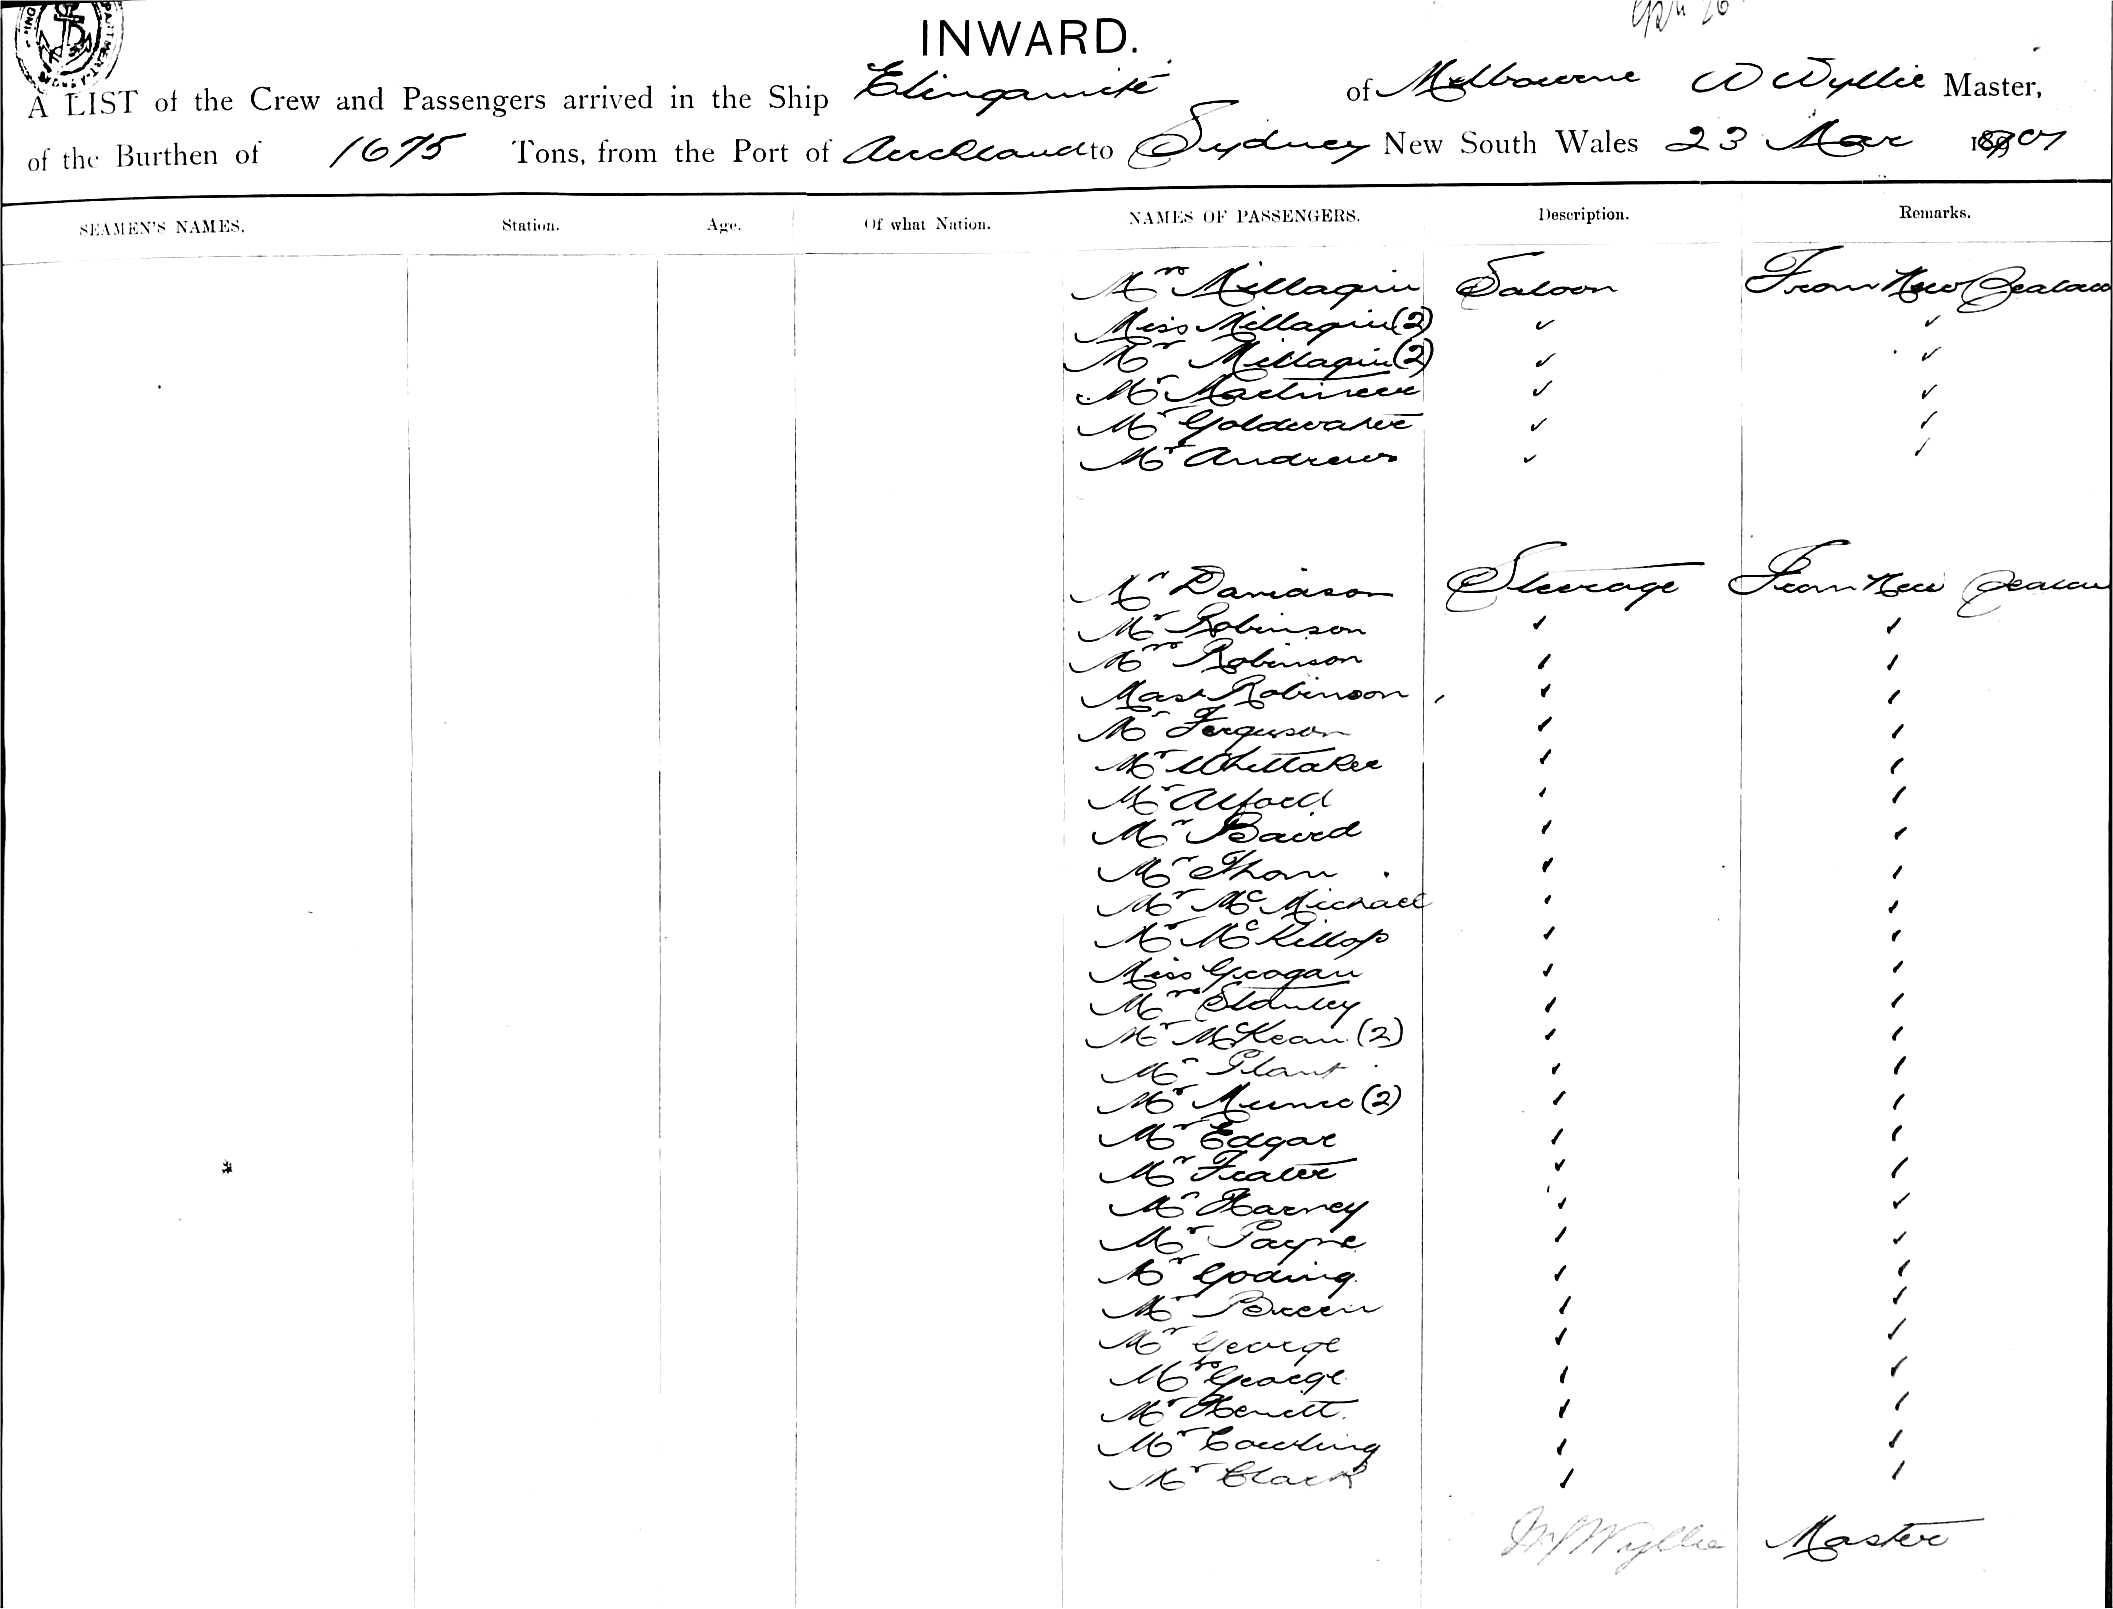 INWARD.
A LIST of the Crew and Passengers arrived in the Ship Elingamite of Melbourne W Wyllie Master,
of the Burthen of 1675 Tons, from the Port of Auckland to Sydney New South Wales 23 Mar 1901
SEAMEN'S NAMES. Station. Age. Of what Nation. NAMES OF PASSENGERS. Description. Remarks.
Mrs Millagin Saloon From New Zealand
Miss Millagin (2) ✓ ✓
Mr Millagin (2) ✓ ✓
Mr Martineer ✓ ✓
Mr Goldwater ✓ ✓
Mr Andrews ✓ ✓
Mr Daniason Steerage From New Zealan
Mr Robinson ✓ ✓
Mrs Robinson ✓ ✓
Mast Robinson ✓ ✓
Mr Ferguson ✓ ✓
Mr Whittaker ✓ ✓
Mr Alford ✓ ✓
Mr Baird ✓ ✓
Mr Thom ✓ ✓
Mr McMichael ✓ ✓
Mr McKillop ✓ ✓
Miss Grogan ✓ ✓
Mrs Stanley ✓ ✓
Mr McKean (2) ✓ ✓
Mr Plant ✓ ✓
Mr Munro (2) ✓ ✓
Mr Edgar ✓ ✓
Mr Frater ✓ ✓
Mr Harney ✓ ✓
Mr Payne ✓ ✓
Mr Goding ✓ ✓
Mr Breen ✓ ✓
Mr George ✓ ✓
Mrs George ✓ ✓
Mr Hewett ✓ ✓
Mr Cowling ✓ ✓
Mr Clark ✓ ✓
Wyllie Master